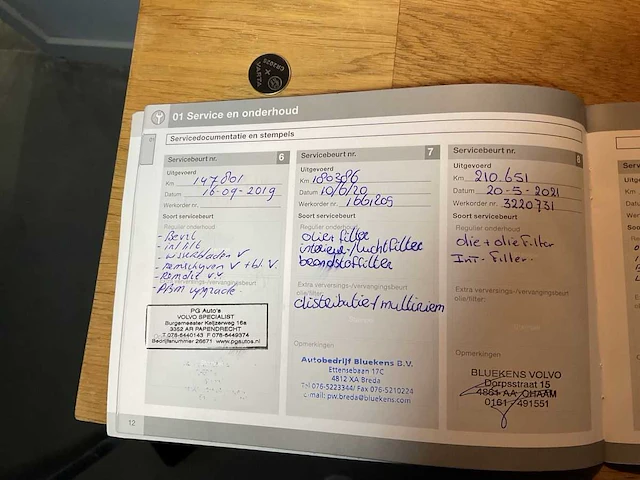 VARTA
CR2025
01 Service en onderhoud
Servicedocumentatie en stempels
Servicebeurt nr. 6
Uitgevoerd
Km 147801
Datum 16-09-2019
Werkorder nr.
Soort servicebeurt
Regulier onderhoud
- wisserbladen V
- remschijven V + bl. V.
- remolie v.v
Extra verversings-/vervangingsbeurt
olie/filter:
PG Auto's
VOLVO SPECIALIST
Burgemeester Keijzerweg 16a
3352 AR PAPENDRECHT
T 078-6440143 F 078-6449374
Bedrijfsnummer 26671 www.pgautos.nl
12
Servicebeurt nr. 7
Uitgevoerd
Km 180386
Datum 10/6/20
Werkorder nr. 1661209
Soort servicebeurt
Regulier onderhoud
olie + filter
interieur-/luchtfilter
brandstoffilter
Extra verversings-/vervangingsbeurt
olie/filter:
distributie + multiriem
Opmerkingen
Autobedrijf Bluekens B.V.
Ettensebaan 17C
4812 XA Breda
Tel 076-5223344/ Fax 076-5210224
e-mail: pw.breda@bluekens.com
Servicebeurt nr. 8
Uitgevoerd
Km 210.651
Datum 20-5-2021
Werkorder nr. 3220731
Soort servicebeurt
Regulier onderhoud
olie + olie Filter
Int. Filter.
Extra verversings-/vervangingsbeurt
olie/filter:
Opmerkingen
BLUEKENS VOLVO
Dorpsstraat 15
4861 AA CHAAM
0161 - 491551